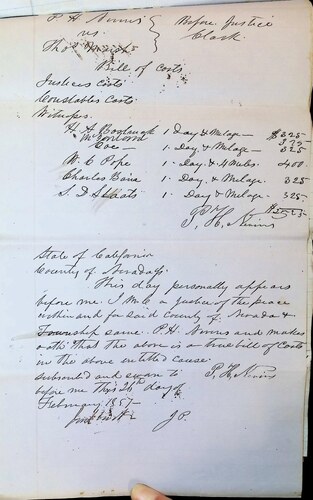 P H Nevins } Before Justice
vs. Clark.
Thos
Bill of Costs
Justices Costs
Constables Costs
Witnesses.
H. A 1 Day & Milage — $3.25
Coe — 1 - Day & Milage — 3.25
W. C Pope 1 - Day & 4 Miles. 4.00
Charles 1 - Day. & Milage. 3.25
S. D 1 - Day & Milage. 3.25
P. H. Nevins
State of California
County of Nevada ss.
This day personally appears
before me. a Justice of the peace
within and for said County of Nevada &
Township same. P.H. Nevins and makes
oath that the above is a true bill of Costs
in the above entitled cause.
subscribed and sworn to P. H. Nevins
before me this 26th day of
February 1857
J P.